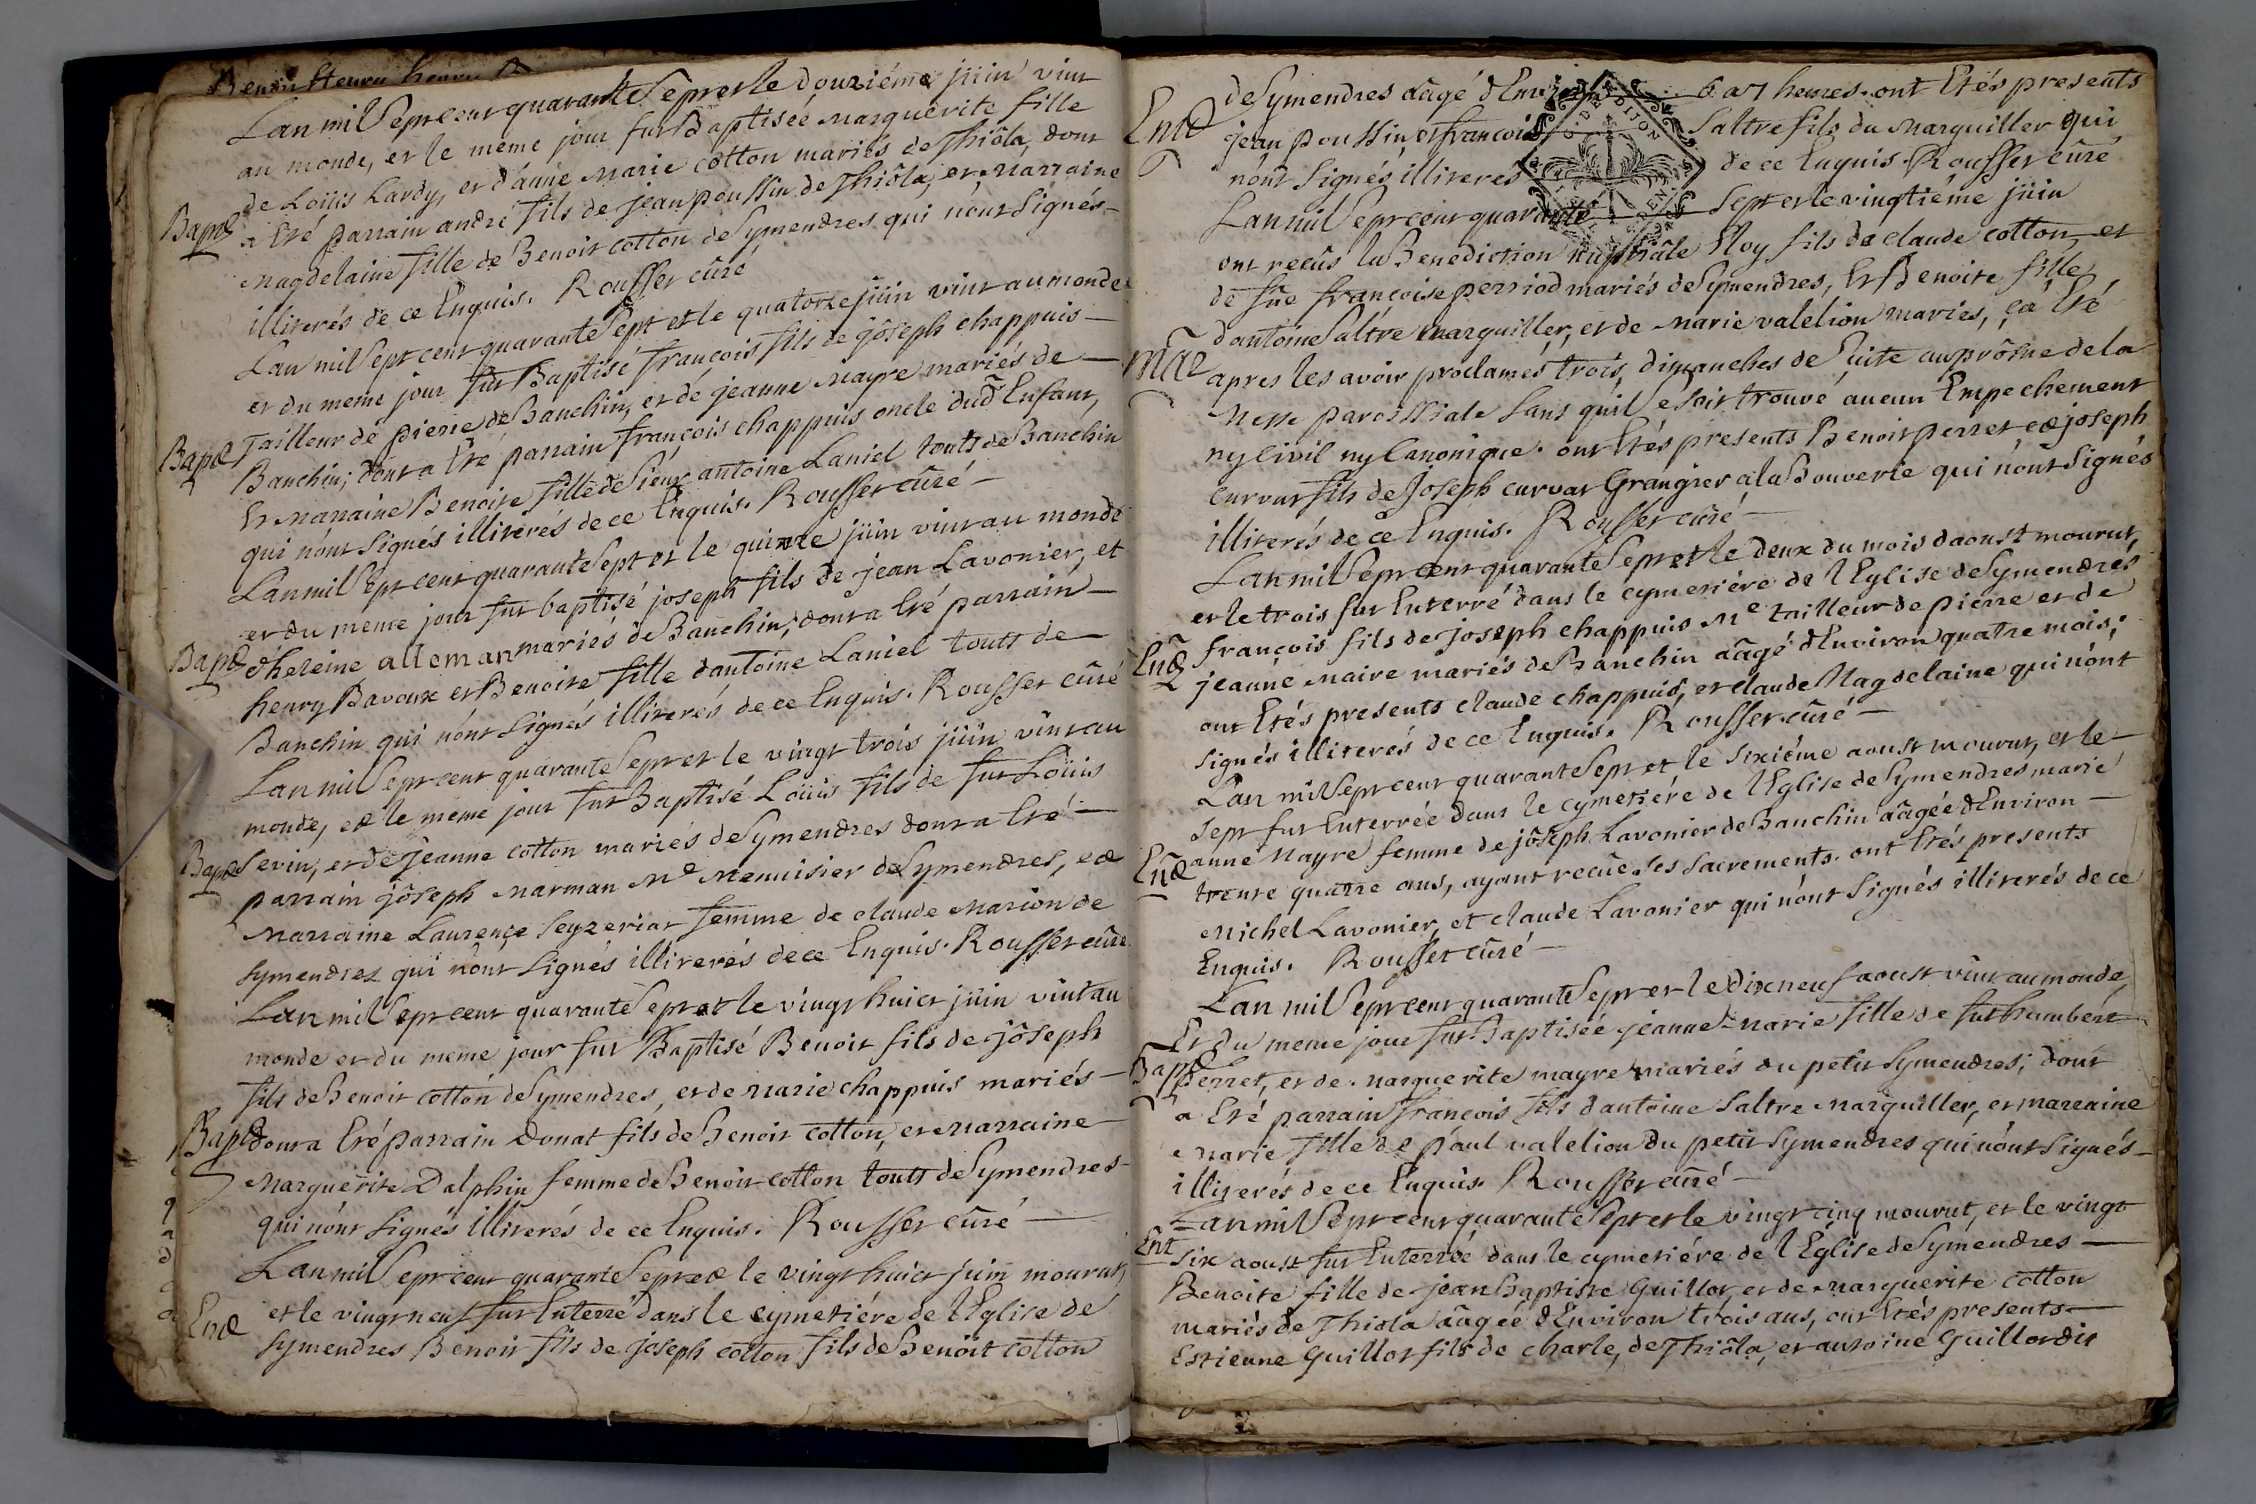 Benoit henry henry
Lan mil Sept cent quarante Sept et le douziéme jüin vint
au monde, et le meme jour fut Baptiséé Marguerite fille
de Loüis Lardy, et d'anne Marie cotton mariés de Thiôla, dont
Bapt
a Eté parrain andré fils de jean poussin de Thiôla, et Marraine
Magdelaine fille de Benoit cotton de Symendres qui n'ont Signés
illiterés de ce Enquis. Rousset cûré
Lan mil Sept cent quarante Sept et le quatorze jüin vint au monde
et du meme jour fut Baptisé françois fils de jôseph chappuis
Tailleur de pierre de Banchin, et de jeanne Mayre mariés de
Bapt
Banchin; dont a Eté parrain françois chappuis oncle dud Enfant,
Et Marraine Benoite fille de Sieur antoine Laniel touts de Banchin
qui n'ont Signés illiterés de ce Enquis. Rousset cûré
Lan mil Sept cent quarante Sept et le quinze jüin vint au monde
et du meme jour fut baptisé joseph fils de jean Lavonier, et
Bapt
d'heleine alleman mariés de Banchin; dont a Eté parrain
henry Bavoux et Benoite fille d'antoine Laniel touts de
Banchin qui n'ont Signés illiterés de ce Enquis. Rousset cûré
Lan mil Sept cent quarante Sept et le vingt trois jüin vint au
monde, et le meme jour fut Baptisé Loüis fils de fut Loüis
Bapt
Sevin, et de jeanne cotton mariés de Symendres dont a Eté
parrain jôseph Marman Me Menuisier de Symendres, et
Marraine Laurençe Seyzeriat femme de claude Marion de
Symendres qui n'ont Signés illiterés de ce Enquis. Rousset cûré
Lan mil Sept cent quarante Sept et le vingt huict jüin vint au
monde et du meme jour fut Baptisé Benoit fils de jôseph
fils de Benoit cotton de Symendres, et de Marie chappuis mariés
Bapt
dont a Eté parrain Donat fils de Benoit cotton, et Marraine
Marguerite Dalphin femme de Benoit cotton touts de Symendres
qui n'ont Signés illiterés de ce Enquis. Rousset cûré
Lan mil Sept cent quarante Sept et le vingt huict juin mourut,
Ent
et le vingt neuf fut Enterré dans le cymetiére de l'Eglise de
Symendres Benoit fils de joseph cotton fils de Benoit cotton
de Symendres aâgé d'Environ 6 a 7 heures. ont Etés presents
Ent
jean poussin, et françois Saltre fils du Marguiller qui
n'ont Signés illiterés de ce Enquis. Rousset cûré
G. DE DIJON
Lan mil Sept cent quarante Sept et le vingtiéme jüin
ont reçûs la Benediction nuptiâle Eloy fils de claude cotton, et
de fûe françoise perriod mariés de Symendres, Et Benoite fille
d'antoine Saltre marguiller, et de Marie valelion mariés, ça Eté
Mar
apres les avoir proclamés trois dimanches de Suite au prône de la
Messe paroissiale Sans quil se soit trouvé aucun Empechement
ny Civil ny Canonique. ont Etés presents Benoit perret et joseph
curvat fils de Joseph curvat Grangier a la Bouverie qui n'ont Signés
illiterés de ce Enquis. Rousset cûré
Lan mil Sept cent quarante Sept et le deux du mois d'aoust mourut,
et le trois fut Enterré dans le cymetiére de l'Eglise de Symendres
Ent
françois fils de joseph chappuis Me tailleur de pierre et de
jeanne Maire mariés de Banchin aâgé d'Environ quatre mois;
ont Etés presents claude chappuis, et claude Magdelaine qui n'ont
signés illiterés de ce Enquis. Rousset cûré
Lan mil Sept cent quarante Sept et le Sixiéme aoust mourut, et le
Sept fut Enterrée dans le cymetiére de l'Eglise de Symendres marie
Ent
anne Mayre femme de jôseph Lavonier de Banchin aâgée d'Environ
trente quatre ans, ayant reçûe les sacrements. ont Etés presents
Michel Lavonier, et claude Lavonier qui n'ont Signés illiterés de ce
Enquis. Rousset cûré
Lan mil Sept cent quarante Sept et le dix neuf aoust vint au monde,
Et du meme jour fut Baptisée jeanne-Marie fille de fut humbert
Bapt
perret, et de Marguerite mayre mariés du petit Symendres; dont
a Eté parrain françois fils d'antoine Saltre Marguiller, et marraine
Marie fille de Paul valelion du petit Symendres qui n'ont Signés
illiterés de ce Enquis. Rousset cûré
Lan mil Sept cent quarante Sept et le vingt cinq mourut, et le vingt
Ent
six aoust fut Enterrée dans le cymetiére de l'Eglise de Symendres
Benoite fille de jean Baptiste Guillot, et de Marguerite cotton
mariés de Thiola aâgéé d'Environ trois ans, ont Etés presents
Estienne Guillot fils de charle, de Thiôla, et antoine Guillot dit